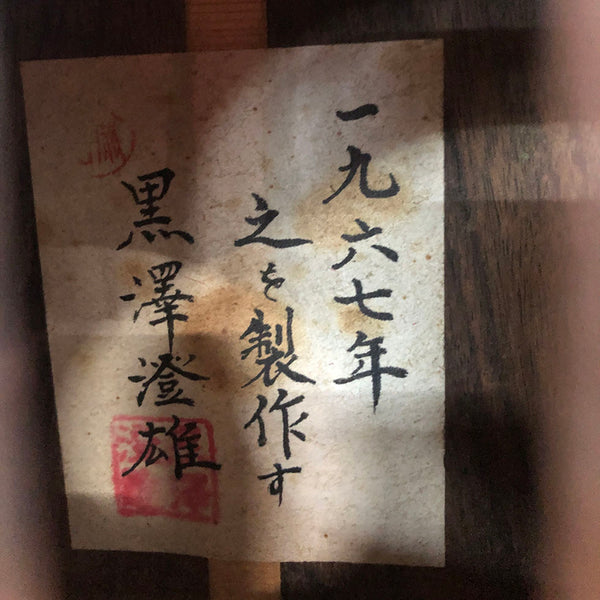 一九六七年
之を製作す
黒澤澄雄